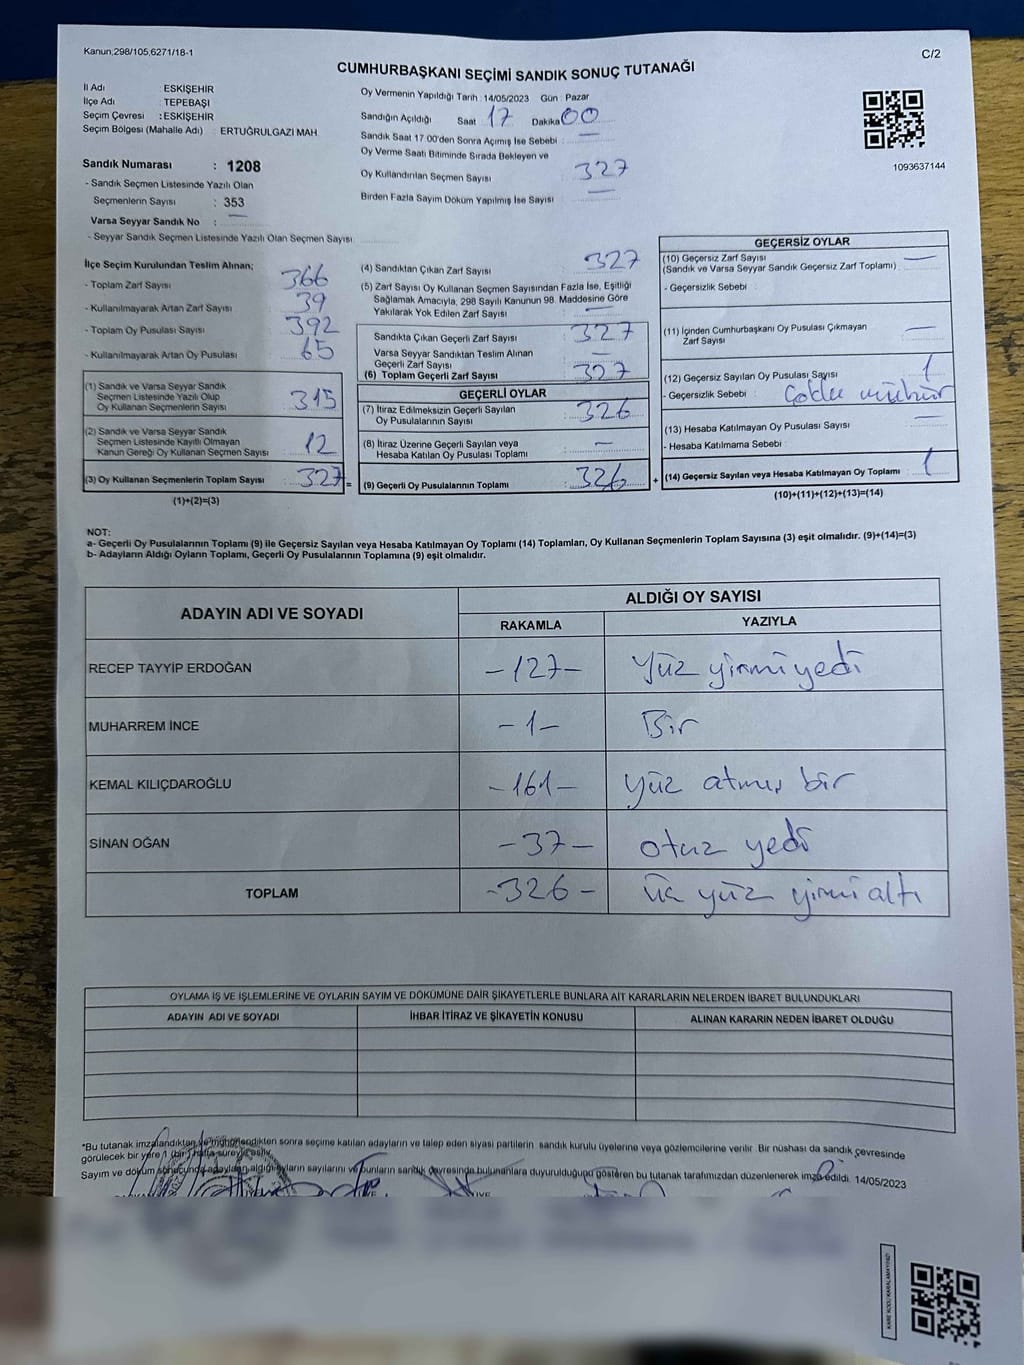 Kanun,298/105,6271/18-1
C/2
CUMHURBAŞKANI SEÇİMİ SANDIK SONUÇ TUTANAĞI
İl Adı : ESKİŞEHİR
İlçe Adı : TEPEBAŞI
Seçim Çevresi : ESKİŞEHİR
Seçim Bölgesi (Mahalle Adı) : ERTUĞRULGAZI MAH.
Sandık Numarası : 1208
- Sandık Seçmen Listesinde Yazılı Olan
Seçmenlerin Sayısı : 353
Varsa Seyyar Sandık No : —
- Seyyar Sandık Seçmen Listesinde Yazılı Olan Seçmen Sayısı
Oy Vermenin Yapıldığı Tarih : 14/05/2023 Gün : Pazar
Sandığın Açıldığı Saat 17 Dakika 00
Sandık Saat 17:00'den Sonra Açımış İse Sebebi : —
Oy Verme Saati Bitiminde Sırada Bekleyen ve
Oy Kullandırılan Seçmen Sayısı : 327
Birden Fazla Sayım Döküm Yapılmış İse Sayısı : —
1093637144
İlçe Seçim Kurulundan Teslim Alınan;
- Toplam Zarf Sayısı : 366
- Kullanılmayarak Artan Zarf Sayısı : 39
- Toplam Oy Pusulası Sayısı : 392
- Kullanılmayarak Artan Oy Pusulası : 65
(1) Sandık ve Varsa Seyyar Sandık
Seçmen Listesinde Yazılı Olup
Oy Kullanan Seçmenlerin Sayısı : 315
(2) Sandık ve Varsa Seyyar Sandık
Seçmen Listesinde Kayıtlı Olmayan
Kanun Gereği Oy Kullanan Seçmen Sayısı : 12
(3) Oy Kullanan Seçmenlerin Toplam Sayısı : 327 =
(1)+(2)=(3)
(4) Sandıktan Çıkan Zarf Sayısı : 327
(5) Zarf Sayısı Oy Kullanan Seçmen Sayısından Fazla İse, Eşitliği
Sağlamak Amacıyla, 298 Sayılı Kanunun 98. Maddesine Göre
Yakılarak Yok Edilen Zarf Sayısı : —
Sandıkta Çıkan Geçerli Zarf Sayısı : 327
Varsa Seyyar Sandıktan Teslim Alınan
Geçerli Zarf Sayısı : —
(6) Toplam Geçerli Zarf Sayısı : 327
GEÇERLİ OYLAR
(7) İtiraz Edilmeksizin Geçerli Sayılan
Oy Pusulalarının Sayısı : 326
(8) İtiraz Üzerine Geçerli Sayılan veya
Hesaba Katılan Oy Pusulası Toplamı : —
(9) Geçerli Oy Pusulalarının Toplamı : 326 +
GEÇERSİZ OYLAR
(10) Geçersiz Zarf Sayısı : —
(Sandık ve Varsa Seyyar Sandık Geçersiz Zarf Toplamı)
- Geçersizlik Sebebi :
(11) İçinden Cumhurbaşkanı Oy Pusulası Çıkmayan
Zarf Sayısı : —
(12) Geçersiz Sayılan Oy Pusulası Sayısı : 1
- Geçersizlik Sebebi : Çoklu mühür
(13) Hesaba Katılmayan Oy Pusulası Sayısı :
- Hesaba Katılmama Sebebi :
(14) Geçersiz Sayılan veya Hesaba Katılmayan Oy Toplamı : 1
(10)+(11)+(12)+(13)=(14)
NOT:
a- Geçerli Oy Pusulalarının Toplamı (9) ile Geçersiz Sayılan veya Hesaba Katılmayan Oy Toplamı (14) Toplamları, Oy Kullanan Seçmenlerin Toplam Sayısına (3) eşit olmalıdır. (9)+(14)=(3)
b- Adayların Aldığı Oyların Toplamı, Geçerli Oy Pusulalarının Toplamına (9) eşit olmalıdır.
ADAYIN ADI VE SOYADI ALDIĞI OY SAYISI
RAKAMLA YAZIYLA
RECEP TAYYİP ERDOĞAN -127- Yüz yirmi yedi
MUHARREM İNCE -1- Bir
KEMAL KILIÇDAROĞLU -161- Yüz atmış bir
SİNAN OĞAN -37- otuz yedi
TOPLAM -326- üç yüz yirmi altı
OYLAMA İŞ VE İŞLEMLERİNE VE OYLARIN SAYIM VE DÖKÜMÜNE DAİR ŞİKAYETLERLE BUNLARA AİT KARARLARIN NELERDEN İBARET BULUNDUKLARI
ADAYIN ADI VE SOYADI İHBAR İTİRAZ VE ŞİKAYETİN KONUSU ALINAN KARARIN NEDEN İBARET OLDUĞU
*Bu tutanak imzalandıktan ve mühürlendikten sonra seçime katılan adayların ve talep eden siyasi partilerin sandık kurulu üyelerine veya gözlemcilerine verilir. Bir nüshası da sandık çevresinde
görülecek bir yere 1 (bir) hafta süreyle asılır.
Sayım ve döküm sonucunda adayların aldığı oyların sayılarını ve bunların sandık çevresinde bulunanlara duyurulduğunu gösteren bu tutanak tarafımızdan düzenlenerek imza edildi. 14/05/2023
KARE KODU KARALAMAYINIZ!